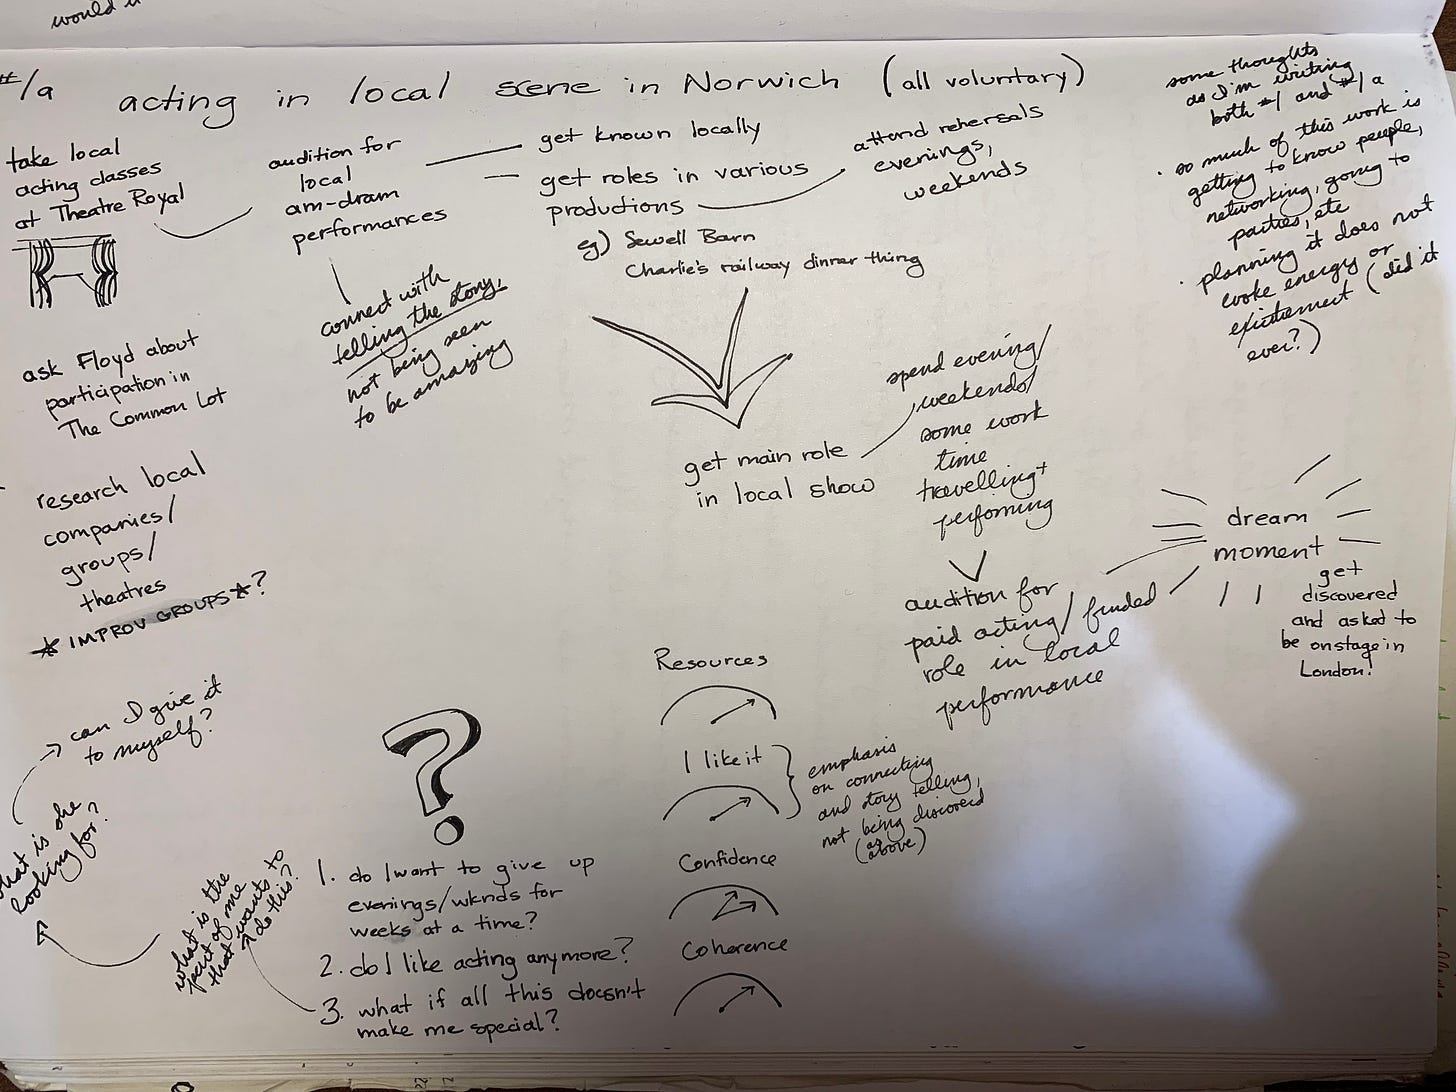 would it
#1a
acting in local scene in Norwich (all voluntary)
take local
acting classes
at Theatre Royal
audition for
local
am-dram
performances
get known locally
get roles in various
productions
eg) Sewell Barn
Charlie's railway dinner thing
attend rehersals
evenings,
weekends
some thoughts
as I'm writing
both #1 and #1a
· so much of this work is
getting to know people,
networking, going to
parties, etc
· planning it does not
evoke energy or
exictement (did it
ever?)
connect with
telling the story,
not being seen
to be amazing
ask Floyd about
participation in
The Common Lot
research local
companies/
groups/
theatres
★ IMPROV GROUPS★?
get main role
in local show
spend evening/
weekends/
some work
time
travelling+
performing
audition for
paid acting/funded
role in local
performance
dream
moment
get
discovered
and asked to
be onstage in
London!
can I give it
to myself?
what is she
looking for?
what is the
part of me
that wants to
do this?
?
1. do I want to give up
evenings/wknds for
weeks at a time?
2. do I like acting anymore?
3. what if all this doesn't
make me special?
Resources
I like it
emphasis
on connecting
and story telling,
not being discovered
(as
above)
Confidence
Coherence